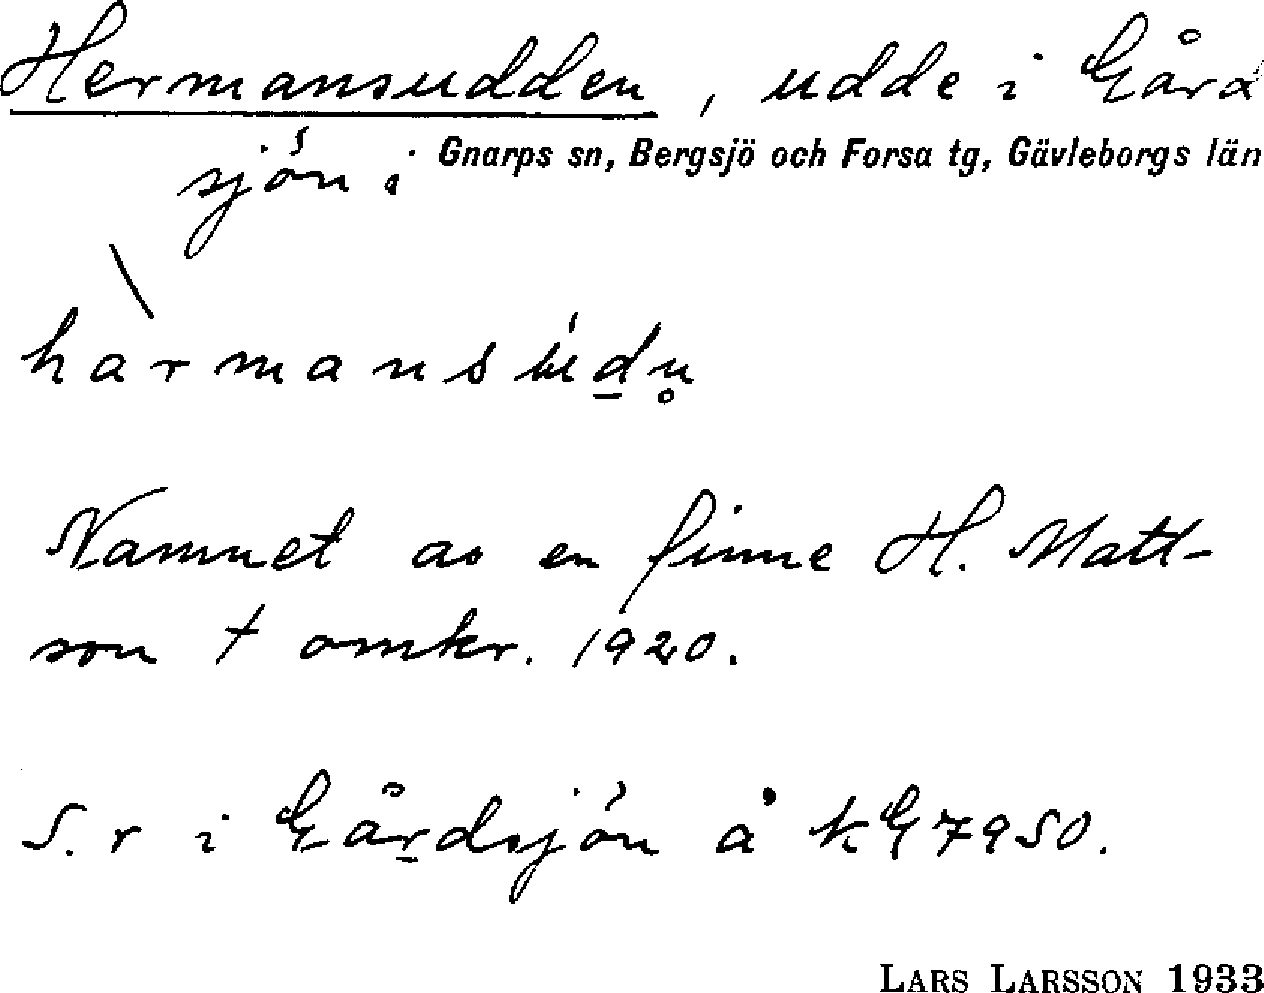 Hermansudden, udde i Gård
sjön i Gnarps sn, Bergsjö och Forsa tg, Gävleborgs län
hàrmansúdn̥
Namnet av en finne H. Matt-
son † omkr. 1920.
S. r i Gårdsjön å kG7950.
LARS LARSSON 1933